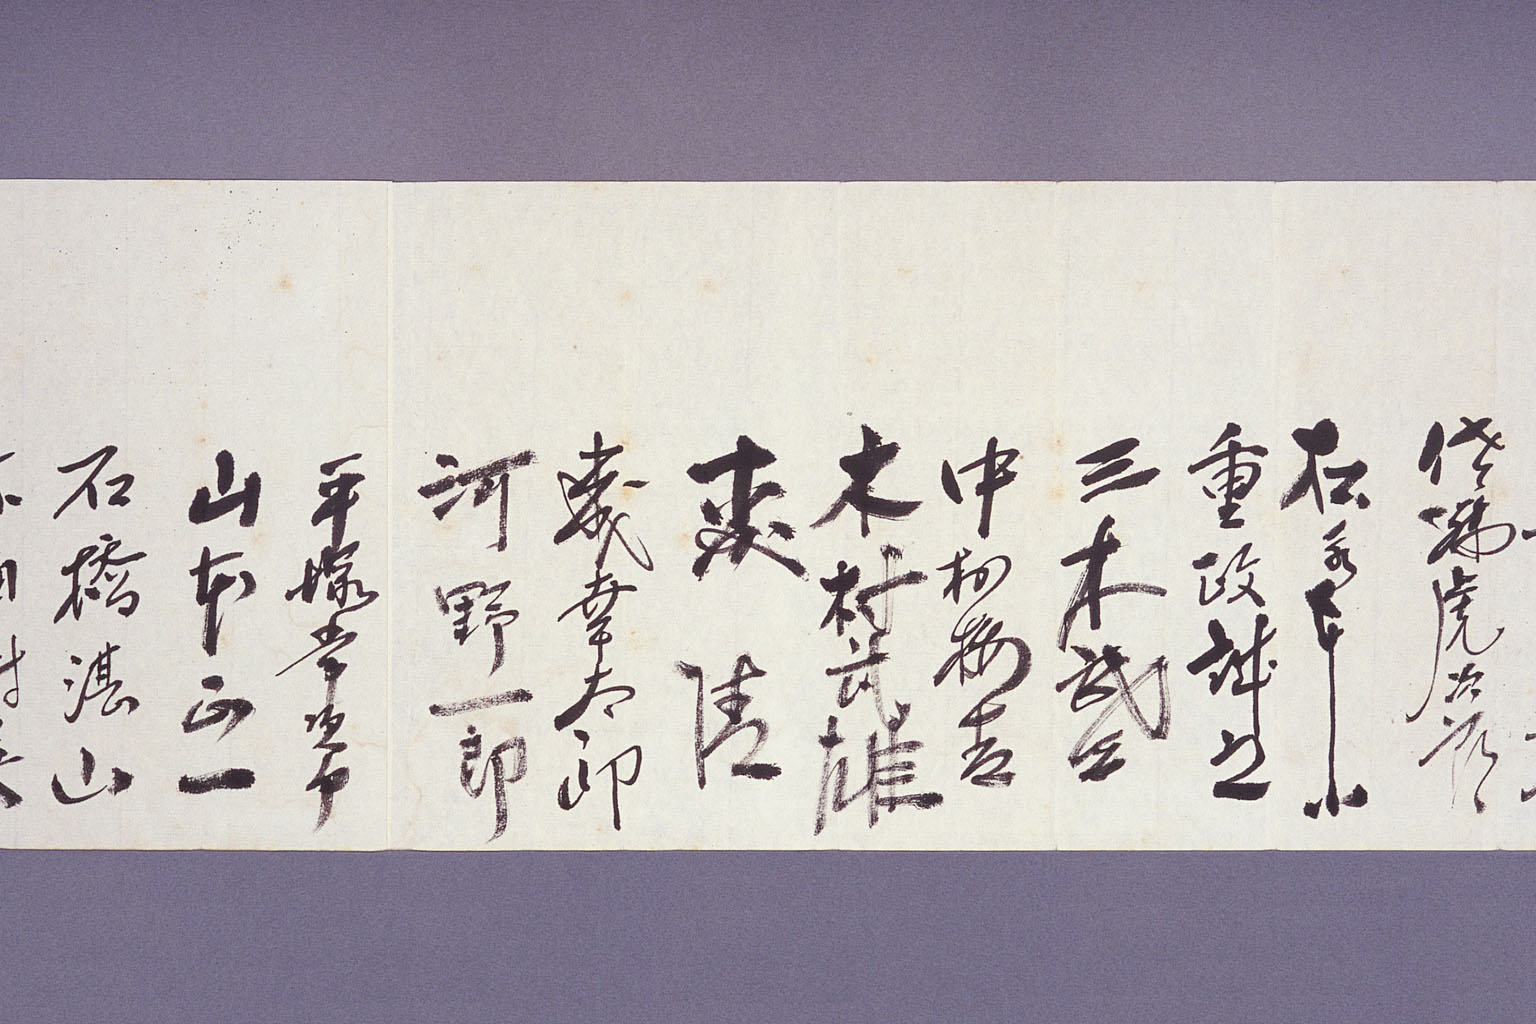 虎次郎
松永東
重政誠之
三木武吉
中村梅吉
木村武雄
清
幸太郎
河野一郎
平塚常次郎
山本正一
石橋湛山